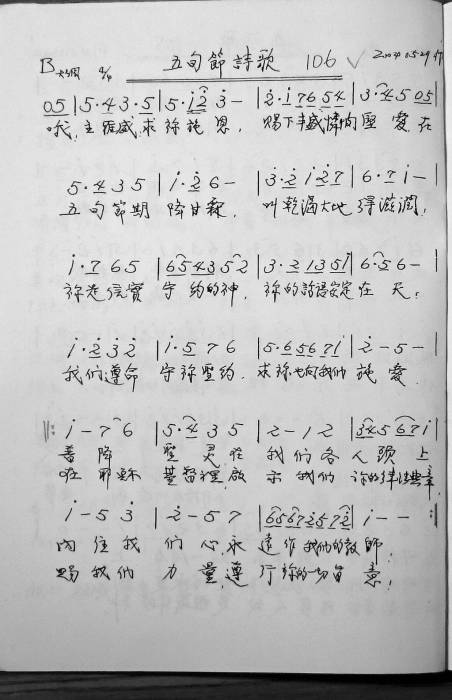 五旬節詩歌 106 ✓
B 4/4
05|5·4 3·5|5·i2 3-|2·i 76 54|3·4 5 05|
哦,主 威,求祢施恩, 賜下丰盛 聖愛,在
5·4 3 5|i·2 6-|3·2 i27|6·7 i-|
五旬節期 降甘霖, 叫乾涸大地得滋潤,
i·7 6 5|654352|3·21351|6·5 6-|
祢是信實 守約的神, 祢的話語安定在天;
i·2 3 2|i·5 7 6|5·65671|2-5-|
我們遵命 守祢聖約, 求祢也向我們施愛
‖: i-7 6|5·4 3 5|2-1 2|345 67i|
善降 聖灵在 我們各人頭上
在耶穌 基督裡,啟示我們 祢的律法典章,
i-5 3|2-5 7|65672572|i--:‖
內住我們心,永遠作我們的教師;
賜我們力量,遵行祢的一切旨意;